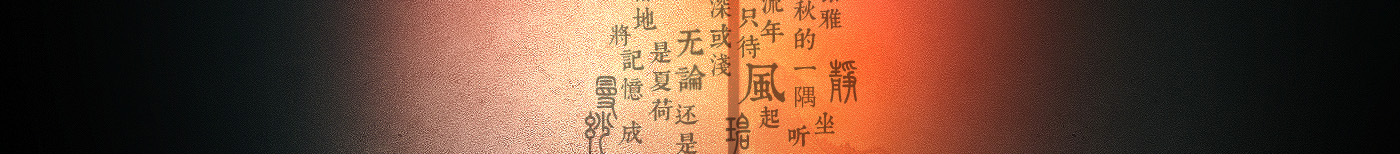 雅
靜坐
秋的一隅
听
風起
流年
只待
深或淺
无論
还是
是夏荷
地
將記憶
成
曼妙